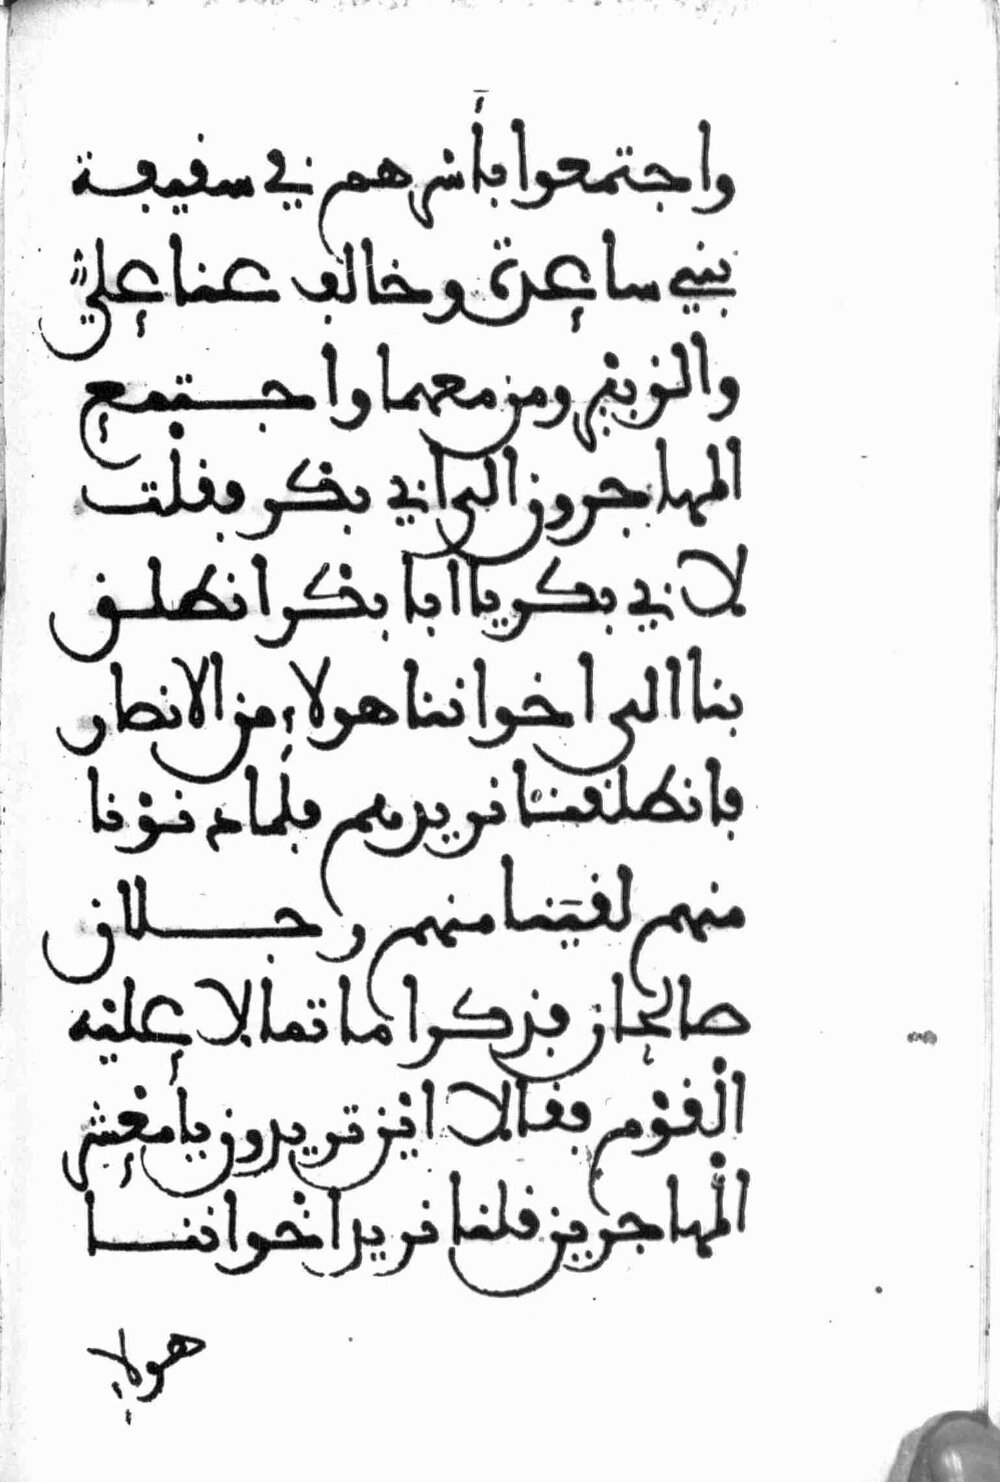 واجتمعوا بأسرهم في سقيفة
بني ساعدة وخالف عنا علي
والزبير ومن معهما واجتمع
المهاجرون الى ابي بكر فقلت
لابي بكر يا ابا بكر انطلق
بنا الى اخواننا هولاء من الانصار
فانطلقنا نريدهم فلما دنونا
منهم لقينا منهم رجلان
صالحان فذكرا ما تمالا عليه
القوم فقالا اين تريدون يا معشر
المهاجرين قلنا نريد اخواننا
هولاء